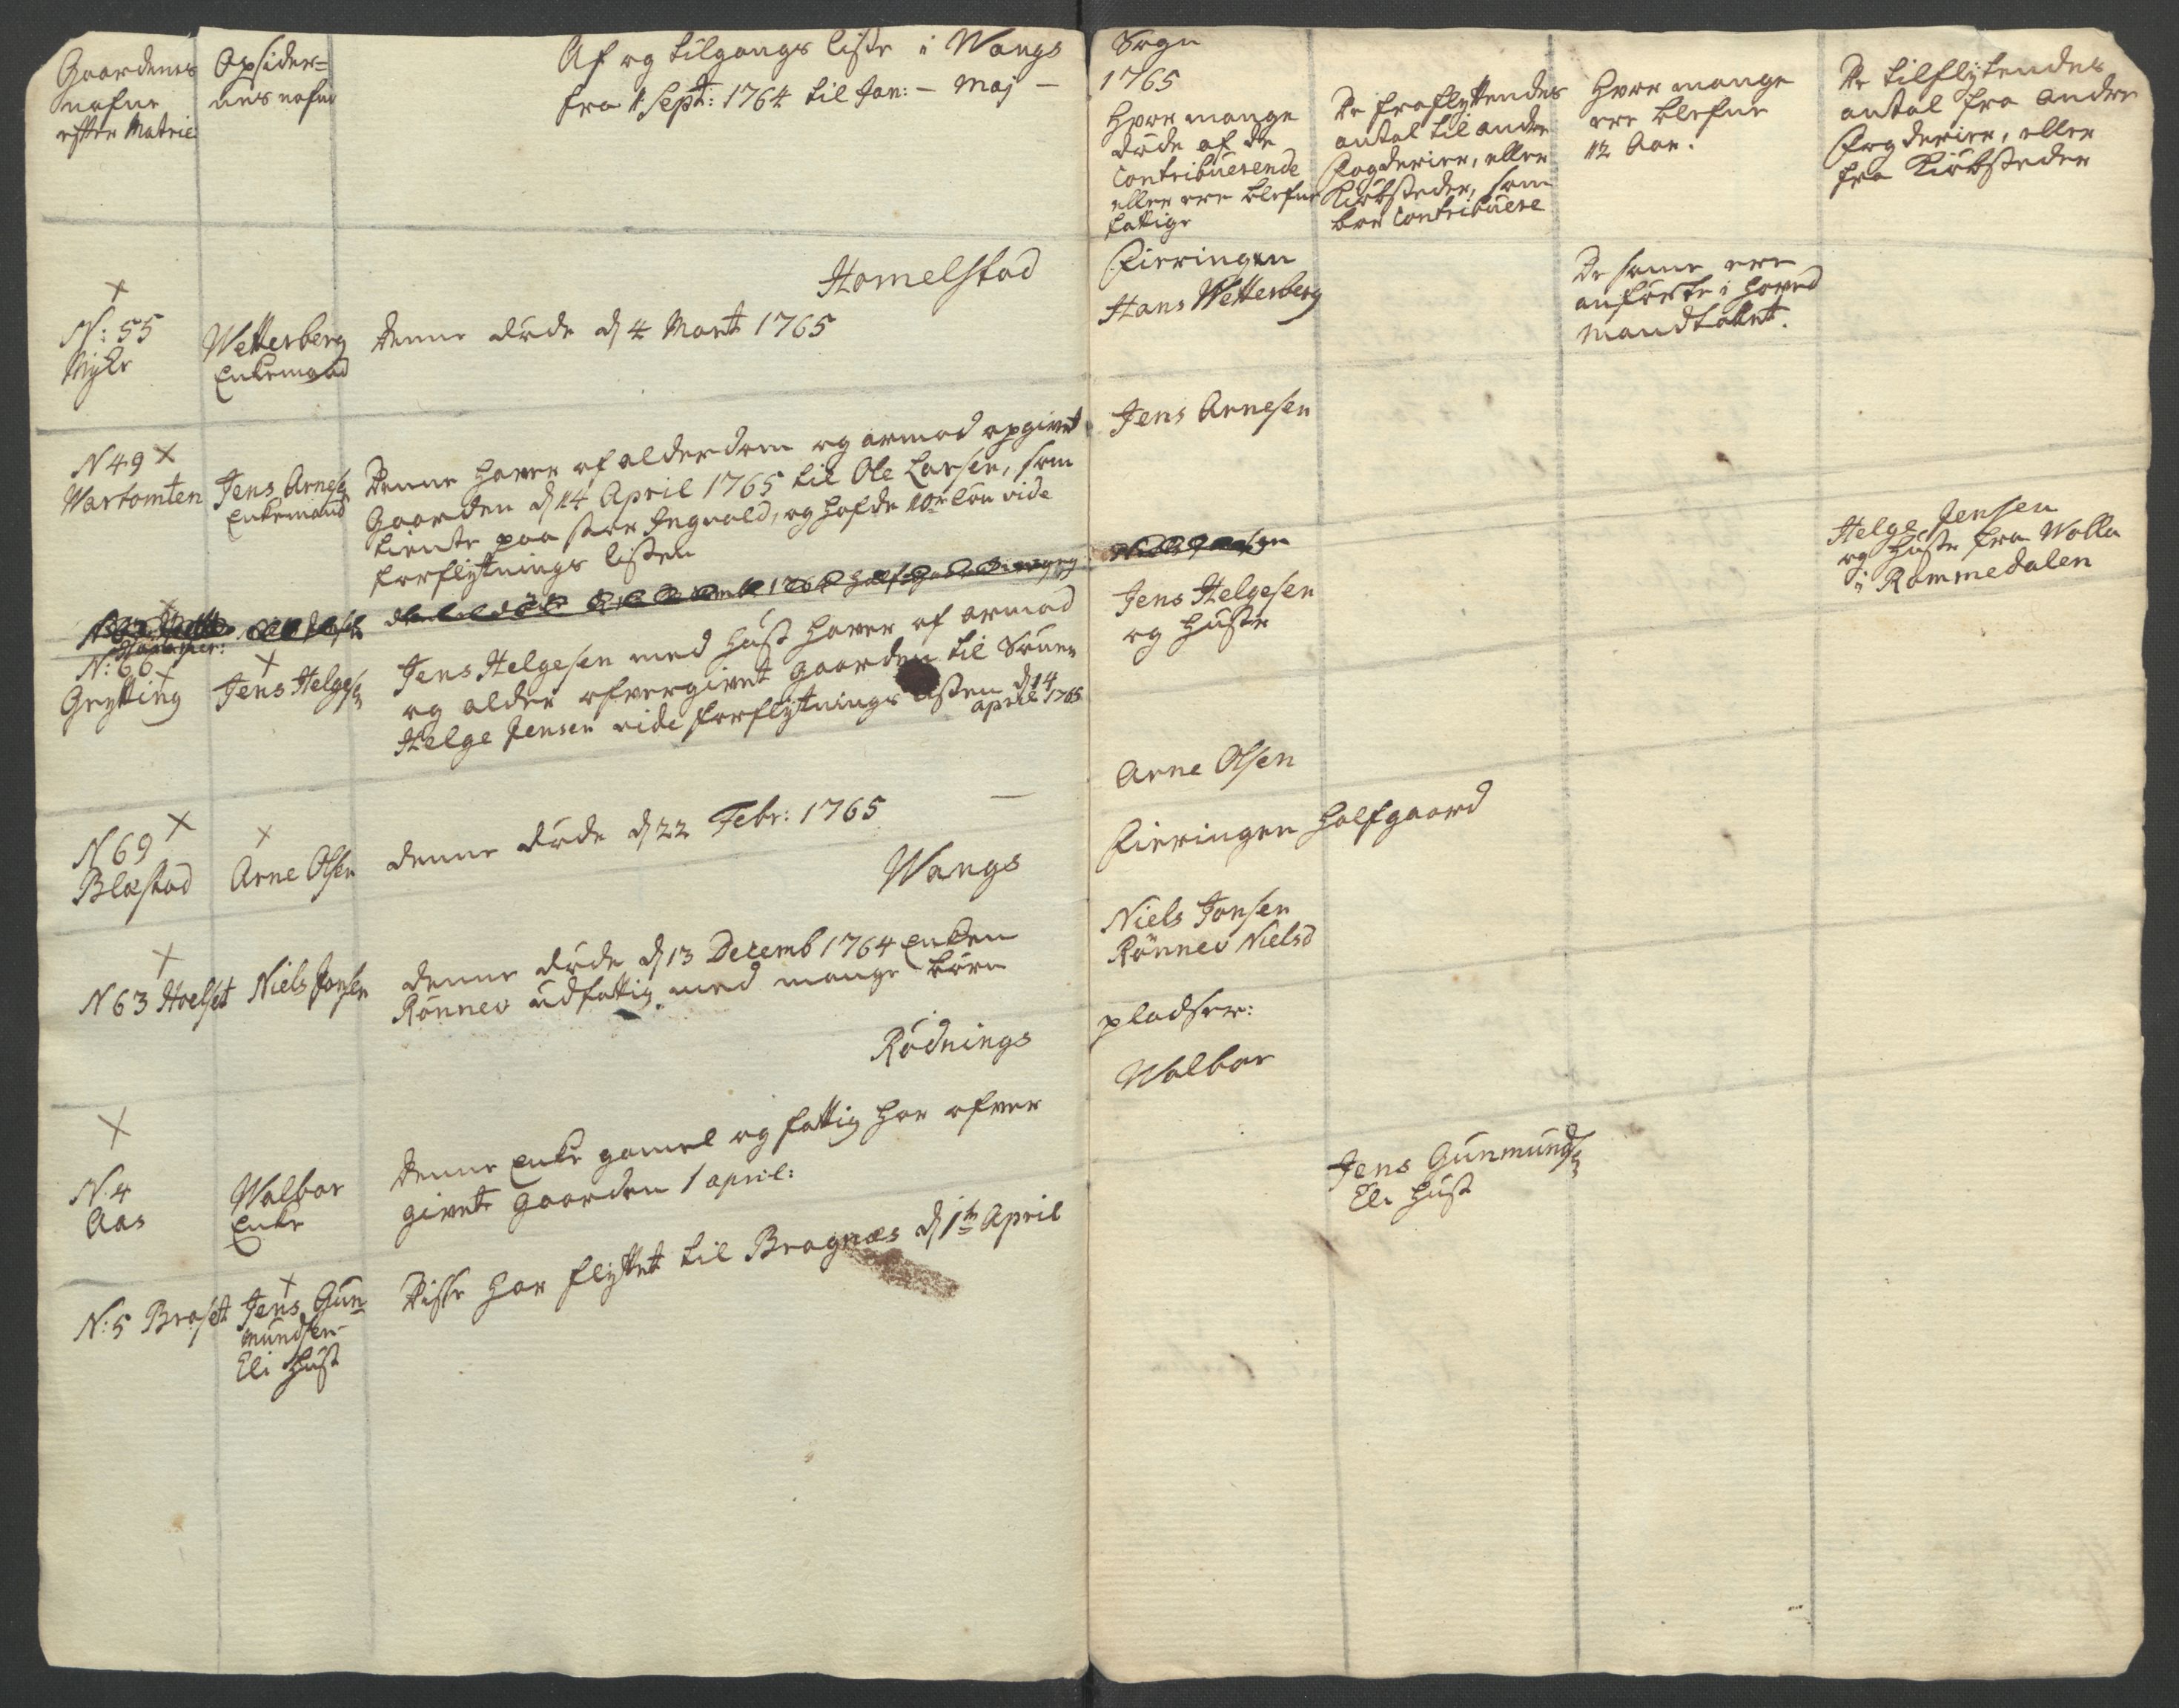 Gaardenes
nafne
efter Matric:
Opsider=
nes nafne
Af og tilgangs liste i Wangs
fra 1 Sept: 1764 til Jan: – Maj –
Sogn
1765
Hvor mange
døde af de
Contribuerende
eller ere blefne
fattige
De fraflyttendes
antal til andre
Fogderier, eller
Kiøbstæder, som
bør Contribuere
Hvor mange
ere blefne
12 Aar.
De tilflytendes
antal fra andre
Fogderier, eller
fra Kiøbstæder
Hamelstad
Fieringen
N: 55
Myhr
Wetterberg
Enkemand
Denne døde d 4 Marti 1765
Hans Wetterberg
De samme ere
anførte i hoved
Mandtallet.
N 49
Wartomten
Jens Arnes
Enkemand
Denne haver af alderdom og armod opgivet
Gaarden d 14 April 1765 til Ole Larsen, som
tiente paa Ingvald, og hafde løn vide
forflytnings listen
Jens Arnesen
N: 66
Grytting
Jens Helges
Jens Helgesen med Hust haver af armod
og alder ofvergivet gaarden til Sønen
Helge Jensen vide forflytnings listen d 14
april 1765
Jens Helgesen
og Hustr
Helge Jensen
og Hustr fra Wolla
i Rommedalen
N 69
Blæstad
Arne Olsen
denne døde d 22 Febr: 1765 –
Arne Olsen
Wangs
Fieringen Halfgaard
N 63 Hoelset
Niels Jonsen
denne døde d 13 Decemb 1764 Enken
Rønnev udfattig med mange børn
Niels Jonsen
Rønnev Nielsd
Rødnings
pladser:
N 4
Aas
Walbor
Enke
Denne Enke gamel og fattig har ofver
givet gaarden 1 april:
Walbor
N: 5 Braset
Jens Gun
mundsen
Eli Hust
Disse har flyttet til Bragnæs d 1te April
Jens Gunmunds
Eli Hust